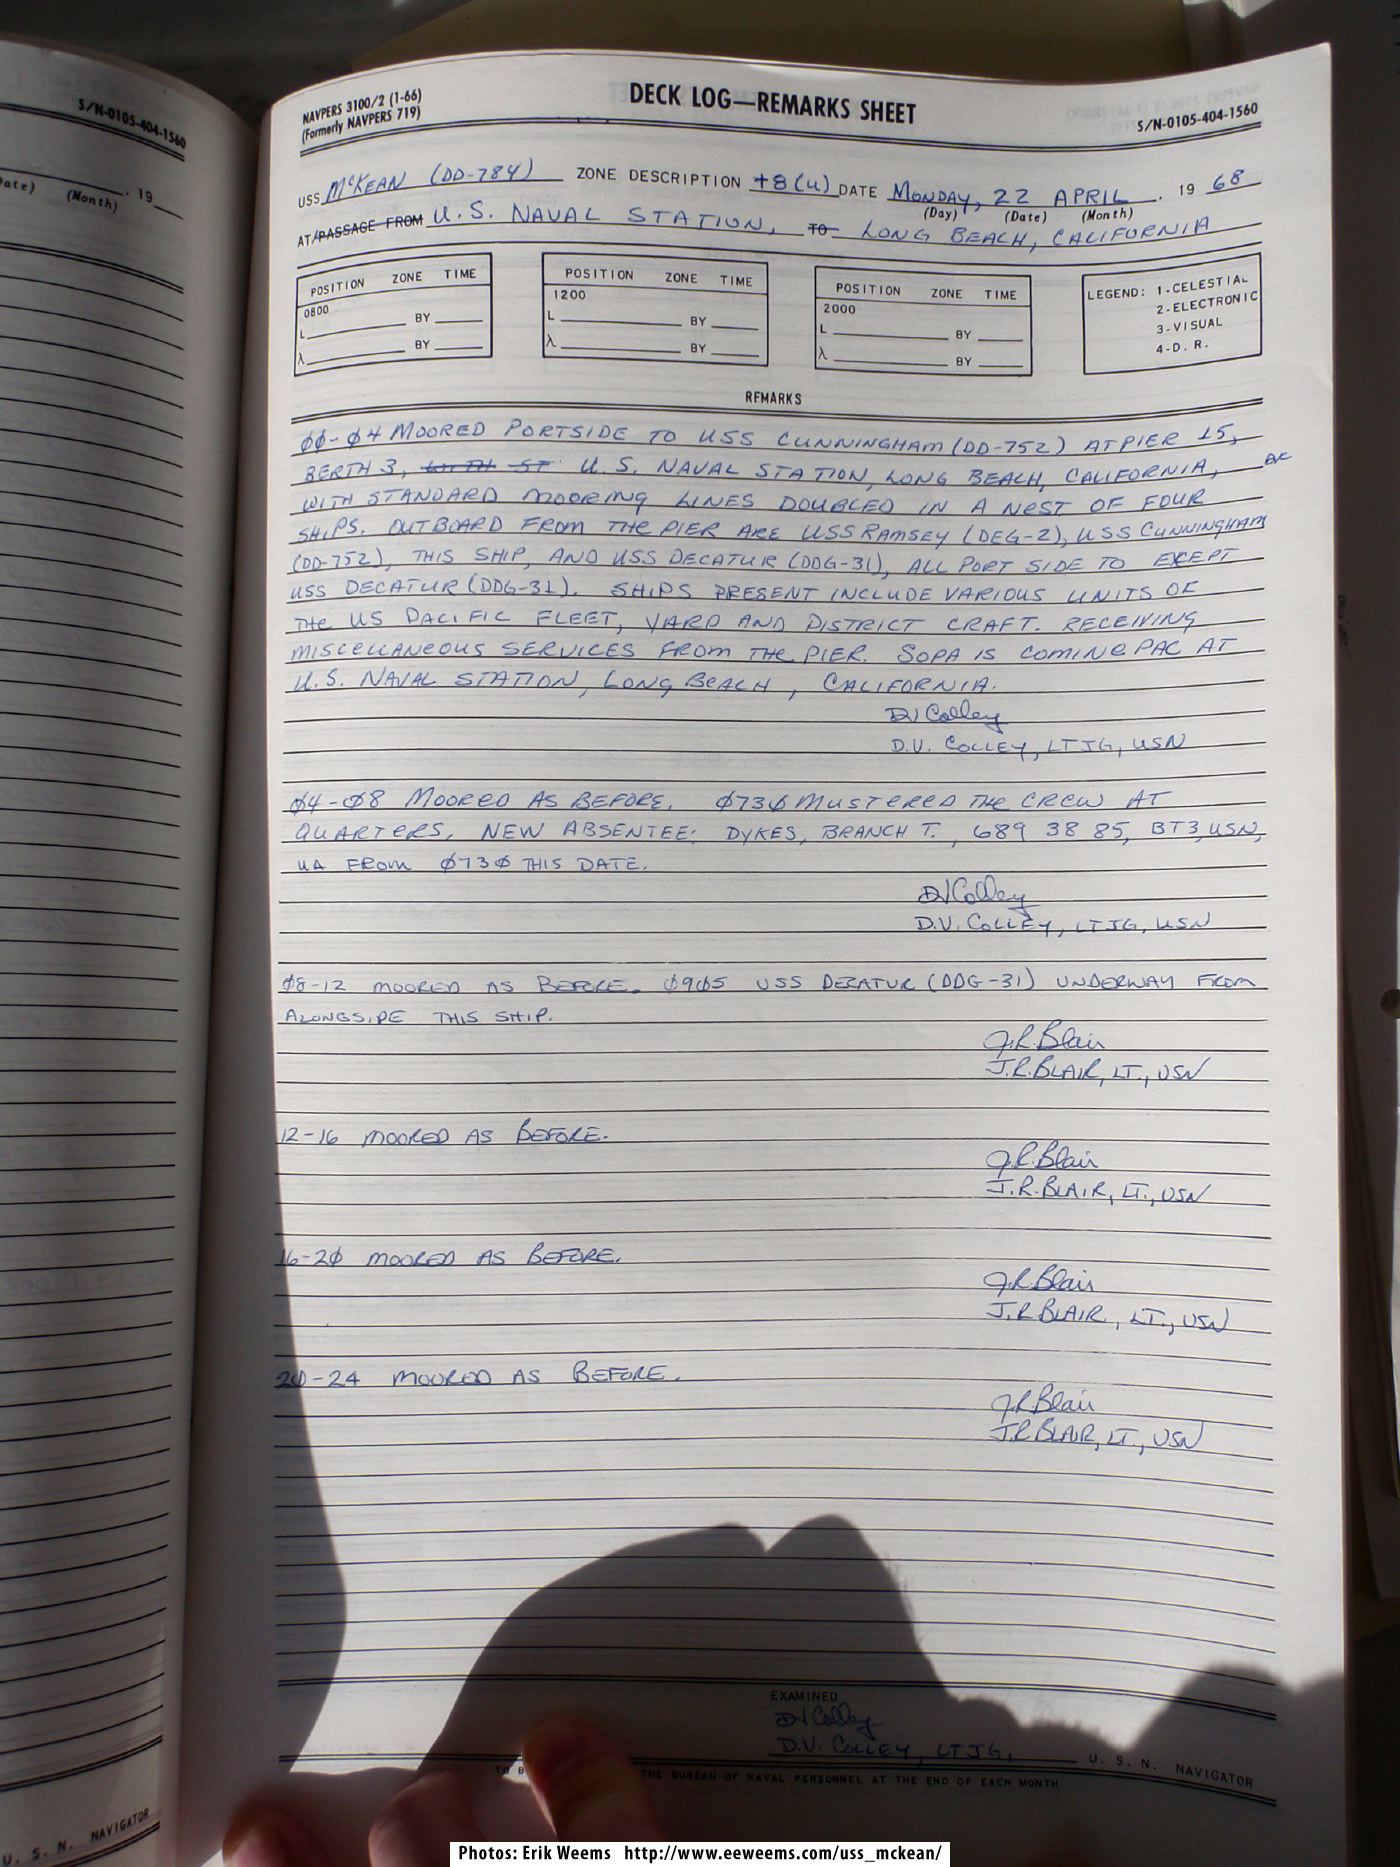 S/N-0105-404-1560
19
(Month)
U. S. N. NAVIGATOR
NAVPERS 3100/2 (1-66)
(Formerly NAVPERS 719)
DECK LOG—REMARKS SHEET
S/N-0105-404-1560
USS McKEAN (DD-784) ZONE DESCRIPTION +8(U) DATE MONDAY, 22 APRIL . 19 68
(Day) (Date) (Month)
AT/PASSAGE FROM U.S. NAVAL STATION, TO LONG BEACH, CALIFORNIA
POSITION ZONE TIME
0800
L BY
λ BY
POSITION ZONE TIME
1200
L BY
λ BY
POSITION ZONE TIME
2000
L BY
λ BY
LEGEND: 1-CELESTIAL
2-ELECTRONIC
3-VISUAL
4-D. R.
REMARKS
ØØ-Ø4 MOORED PORTSIDE TO USS CUNNINGHAM (DD-752) AT PIER 15,
BERTH 3, U.S. NAVAL STATION, LONG BEACH, CALIFORNIA,
WITH STANDARD MOORING LINES DOUBLED IN A NEST OF FOUR
SHIPS. OUTBOARD FROM THE PIER ARE USS RAMSEY (DEG-2), USS CUNNINGHAM
(DD-752), THIS SHIP, AND USS DECATUR (DDG-31), ALL PORT SIDE TO EXCEPT
USS DECATUR (DDG-31). SHIPS PRESENT INCLUDE VARIOUS UNITS OF
THE US PACIFIC FLEET, YARD AND DISTRICT CRAFT. RECEIVING
MISCELLANEOUS SERVICES FROM THE PIER. SOPA IS COMINEPAC AT
U.S. NAVAL STATION, LONG BEACH, CALIFORNIA.
DV Colley
D.V. COLLEY, LTJG, USN
Ø4-Ø8 MOORED AS BEFORE. Ø73Ø MUSTERED THE CREW AT
QUARTERS, NEW ABSENTEE: DYKES, BRANCH T., 689 38 85, BT3, USN,
UA FROM Ø73Ø THIS DATE.
DV Colley
D.V. COLLEY, LTJG, USN
Ø8-12 MOORED AS BEFORE. Ø9Ø5 USS DECATUR (DDG-31) UNDERWAY FROM
ALONGSIDE THIS SHIP.
J.R. Blair
J.R. BLAIR, LT., USN
12-16 MOORED AS BEFORE.
J.R. Blair
J.R. BLAIR, LT., USN
16-2Ø MOORED AS BEFORE.
J.R. Blair
J.R. BLAIR, LT., USN
2Ø-24 MOORED AS BEFORE.
J.R. Blair
J.R. BLAIR, LT., USN
EXAMINED
DV Colley
D.V. COLLEY, LTJG, U. S. N. NAVIGATOR
TO B THE BUREAU OF NAVAL PERSONNEL AT THE END OF EACH MONTH
Photos: Erik Weems http://www.eeweems.com/uss_mckean/